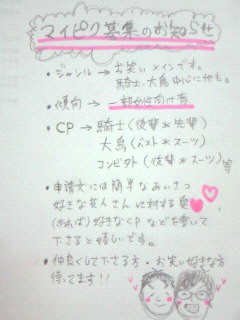 マイピク募集のお知らせ
・ジャンル→お笑いメインです。
騎士・大鳥中心に他も。
・傾向→一部女性向け有
・CP→騎士(後輩*先輩)
大鳥(ベスト*スーツ)
コンビタビ(後輩*スーツ)等
・申請文には簡単なあいさつ
好きな芸人さんに対する愛
(あれば)好きなCPなどを書いて
下さると嬉しいです。
・仲良くして下さる方・お笑い好きな方
待ってます!!